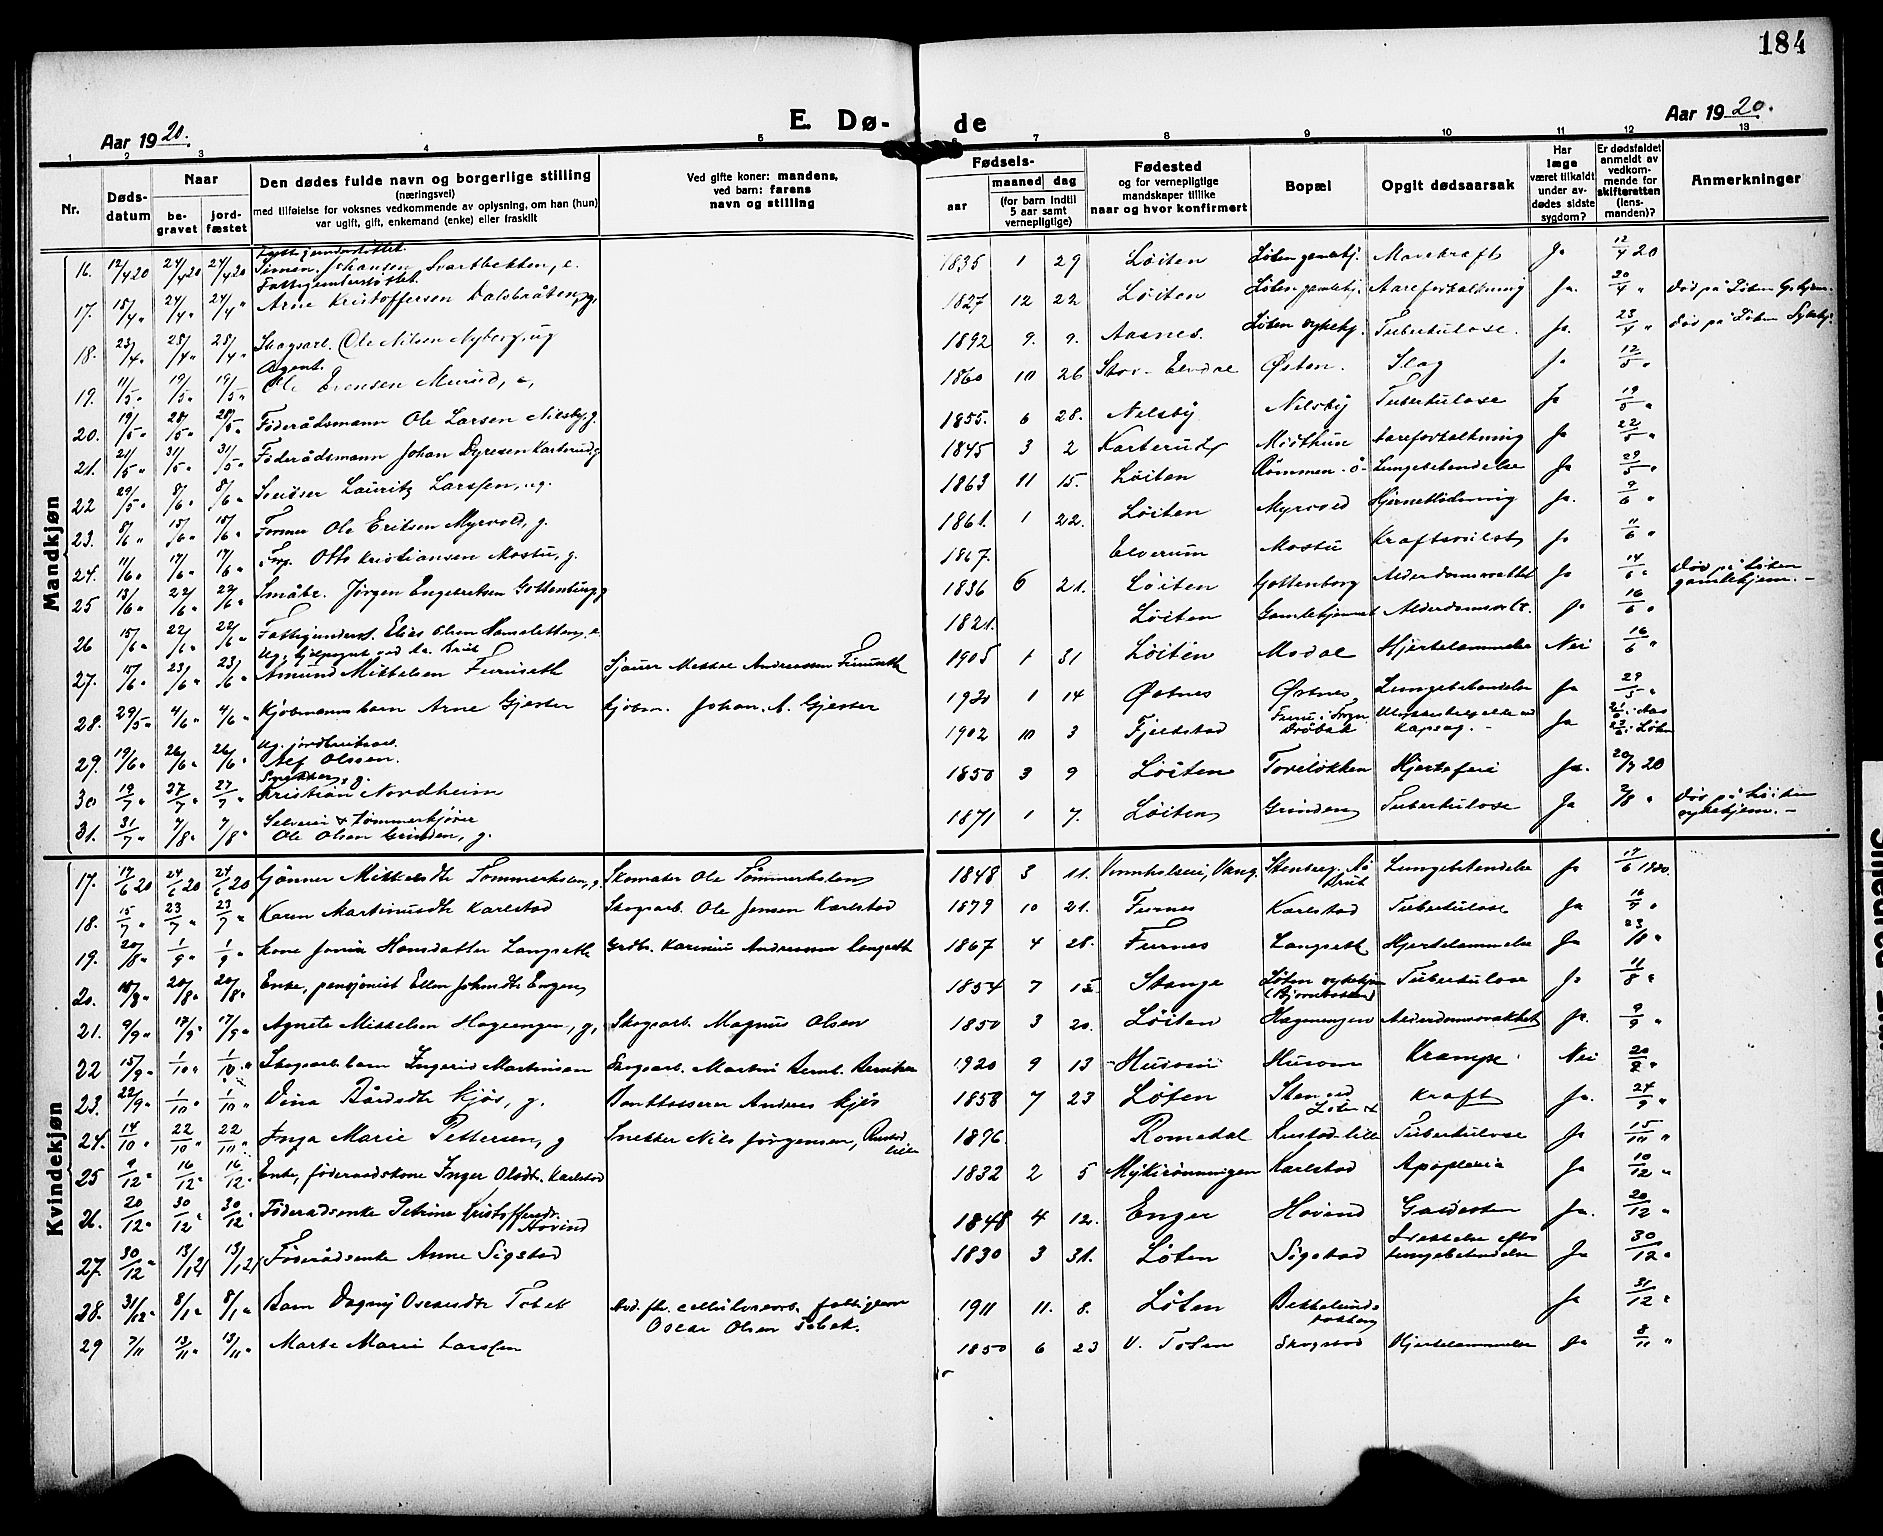 184
Aar 1920.
E. Dø-
de
Aar 1920.
1 2 3 4 5 6 7 8 9 10 11 12 13
Nr.
Døds-
datum
Naar
be-
gravet
jord-
fæstet
Den dødes fulde navn og borgerlige stilling
(næringsvei)
med tilføielse for voksnes vedkommende av oplysning, om han (hun)
var ugift, gift, enkemand (enke) eller fraskilt
Ved gifte koner: mandens,
ved barn: farens
navn og stilling
Fødsels-
aar
maaned
dag
(for barn indtil
5 aar samt
vernepligtige)
Fødested
og for vernepligtige
mandskaper tillike
naar og hvor konfirmert
Bopæl
Opgit dødsaarsak
Har
læge
været tilkaldt
under av-
dødes sidste
sygdom?
Er dødsfaldet
anmeldt av
vedkom-
mende for
skifteretten
(lens-
manden)?
Anmerkninger
Mandkjøn
16. 12/4 20 24/4 20 24/4 20 Fattigunderstøttet Simen Johansen Svartbekken, e. 1835 1 29 Løiten Løten gamlehj. Marekraft Ja 12/4 20
17. 15/4 " 24/4 " 24/4 " Fattigunderstøttet Arne Kristoffersen Dalsbråten, g. 1827 12 22 Løiten Løten gamlehj. Aareforkalkning Ja. 20/4 " Død på Løten Gl.hjem.
18. 23/4 " 28/4 " 28/4 " Skogsarb. Ole Nilsen Nyberg, ug 1892 9. 9. Aasnes. Løten sykehj. Tuberkulose. Ja. 23/4 " Død på Løten Sykehj.
19. 11/5 " 19/5 " 19/5 " Agent. Ole Evensen Murud, e, 1860 10 26 Stor-Elvdal Østen. Slag Ja 12/5 "
20. 19/5 " 28/5 " 28/5 " Føderådsmann Ole Larsen Nilsby, g. 1855. 6 28. Nilsby Nilsby Tuberkulose Ja 19/5 "
21. 21/5 " 31/5 " 31/5 " Føderådsmann Johan Dyresen Karterud g 1845 3 2 Karterud Midthun Aareforkalkning Ja 22/5 "
22 29/5 " 8/6 " 8/6 " Lauritz Larssen, ug. 1863 11 15. Løiten Rømmen ø Lungebetendelse Ja 29/5 "
23. 8/6 " 15/6 " 15/6 " Former Ole Eriksen Myrvold, g. 1861. 1 22. Løiten Myrvold Hjerneblødning Ja. 9/6 "
24. 11/6 " 17/6 " 17/6 " Fhv. Otto Kristiansen Mostu, g. 1867. Elverum Mostu Kraftsvulst Ja 11/6 "
25 13/6 " 22/6 " 22/6 " Småbr. Jørgen Engebretsen Gottenborg, g 1836 6 21. Løiten Gottenborg Alderdomssvakhet Ja 14/6 " Død på Løten gamlehjem. –
26 15/6 " 22/6 " 22/6 " Fattigunderst. Elias Olsen Hamsletten, e. 1821. Løiten Gamlehjemmet Alderdomssv. Ja 16/6 "
27. 15/6 " 23/6 " 23/6 " Amund Mikkelsen Furuseth Sjauer Mikkel Andreassen Furuseth 1905 1 31 Løiten Modal Hjertelammelse Nei 16/6 "
28. 29/5 " 4/6 " 4/6 " Kjøbmanns barn Arne Gjester Kjøbm. Johan A. Gjester 1920 1 14 Østnes Østnes Lungebetendelse Ja 29/5 "
29. 19/6 " 26/6 " 26/6 " Ug. jordbruksarb. Alf Olssen. 1902 10 3 Fjeldstad Drøbak Ja Løten
30 19/7 " 27/7 " 27/7 " Snekker, g. Kristian Nordheim 1850 3 9 Løiten Toreløkken Hjertefeil Ja. 20/7 20
31. 31/7 " 7/8 " 7/8 " Selveier & tømmerkjører Ole Olsen Grinden, g. 1871 1 7. Løiten Grinden Tuberkulose Ja 2/8 " Død på Løiten sykehjem. –
Kvindekjøn
17. 17/6 20 24/6 20 24/6 20 Gønner Mikkelsdtr Tømmerholen, g. Skomaker Ole Tømmerholen 1848 3 11. Vang. Stenberg. Lungebetendelse Ja 17/6 1920.
18. 15/7 " 23/7 " 23/7 " Karen Martinusdtr Karlstad Skogsarb. Ole Jensen Karlstad 1879 10 21. Furnes Karlstad Tuberkulose Ja 16/7 "
19. 20/8 " 1/9 " 1/9 " Kone Jonia Hansdatter Langseth Grdbr. Karinius Andreassen Langseth 1867 4 28. Furnes Langseth Hjertelammelse Ja 23/8 "
20. 10/8 " 20/8 " 20/8 " Enke, pensjonist Ellen Johnsdtr Engen 1854 7 15 Stange Løten sykehjem Tuberkulose Ja 11/8 "
21. 9/9 " 17/9 " 17/9 " Agnete Mikkelsen Hageengen, g, Skogsarb. Magnus Olsen 1850 3 20. Løiten Hagenengen Alderdomssvakhet Ja. 9/9 "
22 15/9 " 1/10 " 1/10 " Skogsarb. barn Ingerid Martinsen Skogsarb. Martin Bernt. 1920 9 13 Husom Husom Krampe Nei 20/9 "
23. 22/9 " 1/10 " 1/10 " Dina Bårdsdtr Kjøs, g. Bankkasserer Andreas Kjøs 1858 7 23 Løten Sten ved Løten st Kraft Ja. 24/9 "
24. 14/10 " 22/10 " 22/10 " Inga Marie Pettersen, g Snekker Nils Jørgensen, Rustad lille 1896. Romedal Rustad lille Tuberkulose Ja 15/10 "
25 9/12 " 16/12 " 16/12 " Enke, føderaadskone Inger Olsdtr. Karlstad 1832 2 5 Mykirønningen Karlstad Apoplexia Ja 10/12 "
26. 20/12 " 30/12 " 30/12 " Føderådsenke Petrine Kristoffersdr. Hovind 1848 4 12. Enger Hovind Galdesten Ja. 20/12 "
27. 30/12 " 13/1 21 13/1 21 Føderådsenke Anne Sigstad 1830 3 31. Løten Sigstad Svekkelse efter lungebetendelse Ja 30/12 "
28. 31/12 " 8/1 " 8/1 " Barn Dagny Oscarsdtr Tobek Oscar Olsen Tobek. 1911 11. 8. Løten Bekkelunds Ja 31/12 "
29 7/11 13/11 " 13/11 " Marte Marie Larssen 1850 6 23 V. Toten Skogstad Hjertelammelse Ja 8/11 "